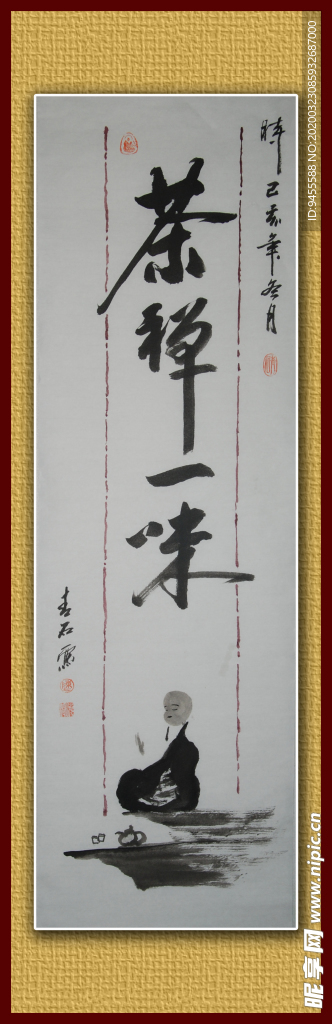 時己亥年冬月
茶禅一味
青石寫
ID:9455588 NO:20200323085932687000
昵享网 www.nipic.cn